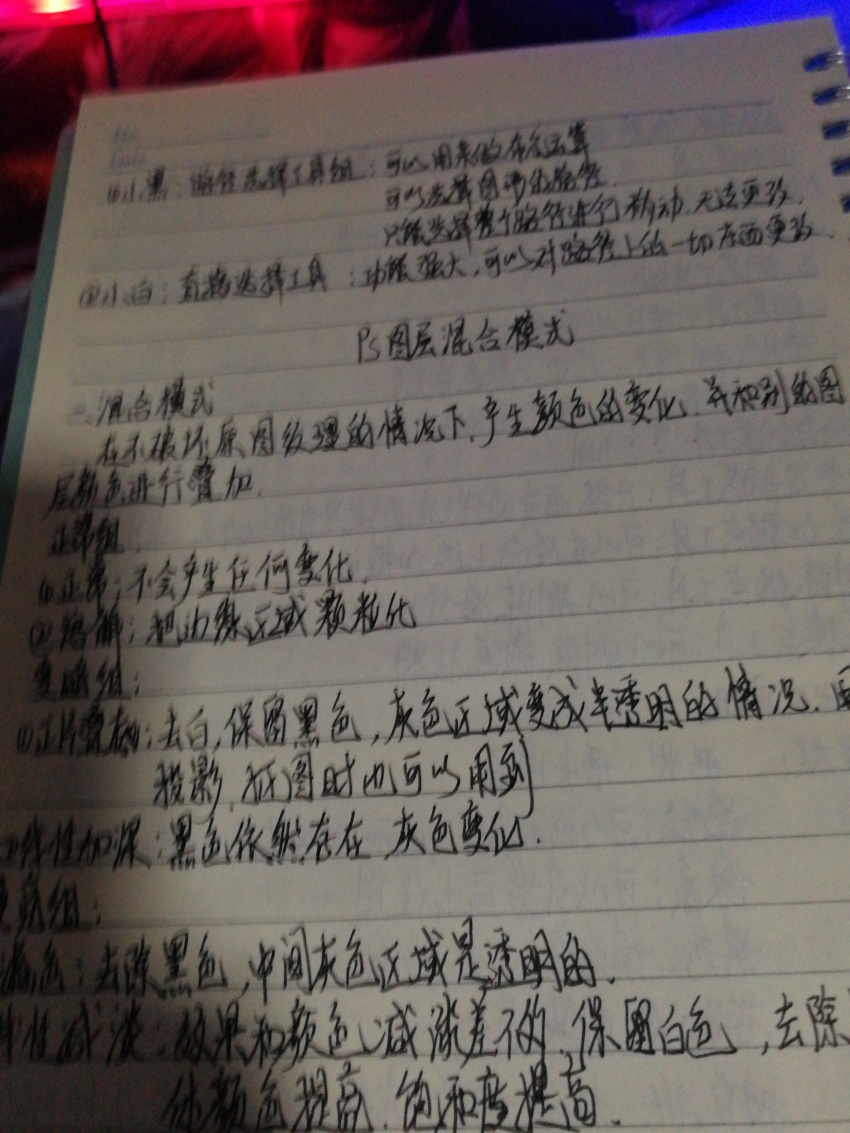 ①小黑：路径选择工具组：可以用来做布尔运算
可以选择图形的路径.
只能选择整个路径进行移动,无法更改.
②小白：直接选择工具：功能强大,可以对路径上的一切东西更改.
Ps图层混合模式
一.混合模式
在不破坏原图纹理的情况下,产生颜色的变化.并和别的图
层颜色进行叠加.
正常组.
①正常：不会产生任何变化.
②溶解：把边缘区域颗粒化
变暗组：
①正片叠底：去白,保留黑色,灰色区域变成半透明的情况.
投影.抠图时也可以用到
②线性加深：黑色依然存在,灰色变化.
变亮组：
滤色：去除黑色,中间灰色区域是透明的.
线性减淡：效果和颜色减淡差不多.保留白色,去除
体颜色提高.饱和度提高.